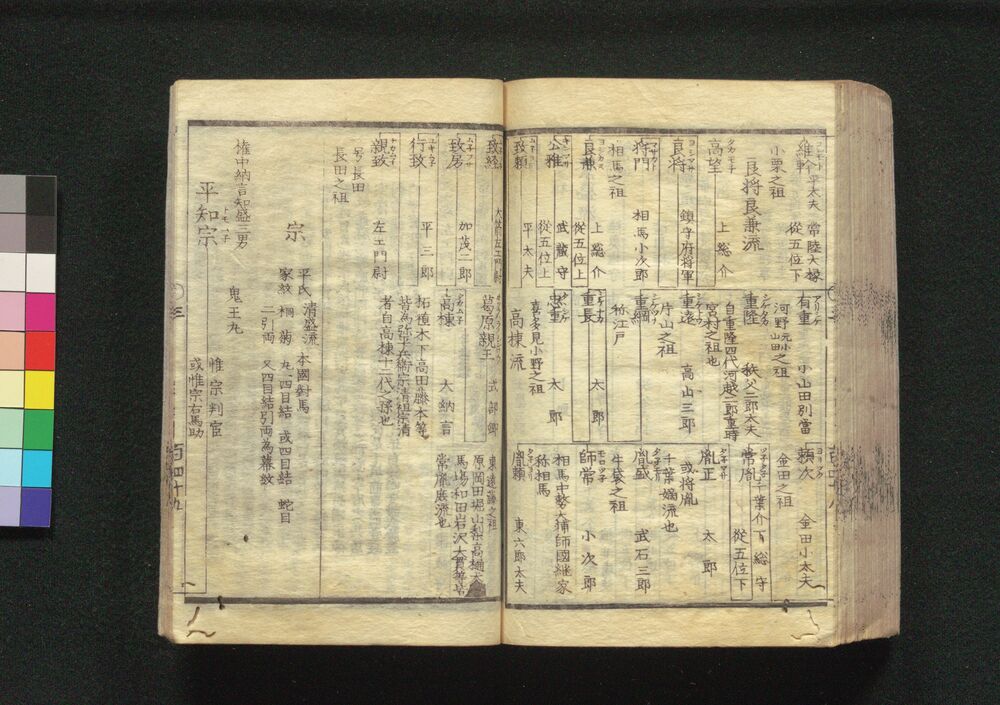 維幹
平太夫
常陸大掾
從五位下
小栗之祖
良將良兼流
高望
上総介
良将
鎮守府将軍
将門
相馬小次郎
相馬之祖
良兼
上総介
從五位上
公雅
武蔵守
從五位上
致頼
平太夫
有重
小山田別當
河野
小山田之祖
重隆
秩父二郎太夫
自重隆四代河越二郎重時
宮村之祖也
重遠
高山三郎
片山之祖
重綱
称江戸
重長
太郎
忠重
太郎
喜多見小野之祖
高棟流
頼次
金田小太夫
金田之祖
常胤
千葉介下総守
從五位下
胤正
太郎
或将胤
千葉嫡流也
胤盛
武石三郎
牛袋之祖
師常
小次郎
相馬中務大輔師國継家
称相馬
胤頼
東六郎太夫
致経
大箭左エ門尉
致房
加茂二郎
行致
平三郎
親致
左エ門尉
号長田
長田之祖
葛原親王
式部卿
高棟
大納言
拓植木下高田藤本等
皆為弥平兵衛宗清祖宗清
者自高棟十二代之孫也
東遠藤之祖
原岡田堀山梨高樋
馬場和田岩沢大貫等
常胤庶流也
宗
平氏
清盛流
本國對馬
家紋
桐菊
丸ノ四目結
或四目結
蛇目
二引両
又四目結引両為幕紋
権中納言知盛三男
平知宗
トモムネ
鬼王丸
惟宗判官
或惟宗右馬助
百四十九